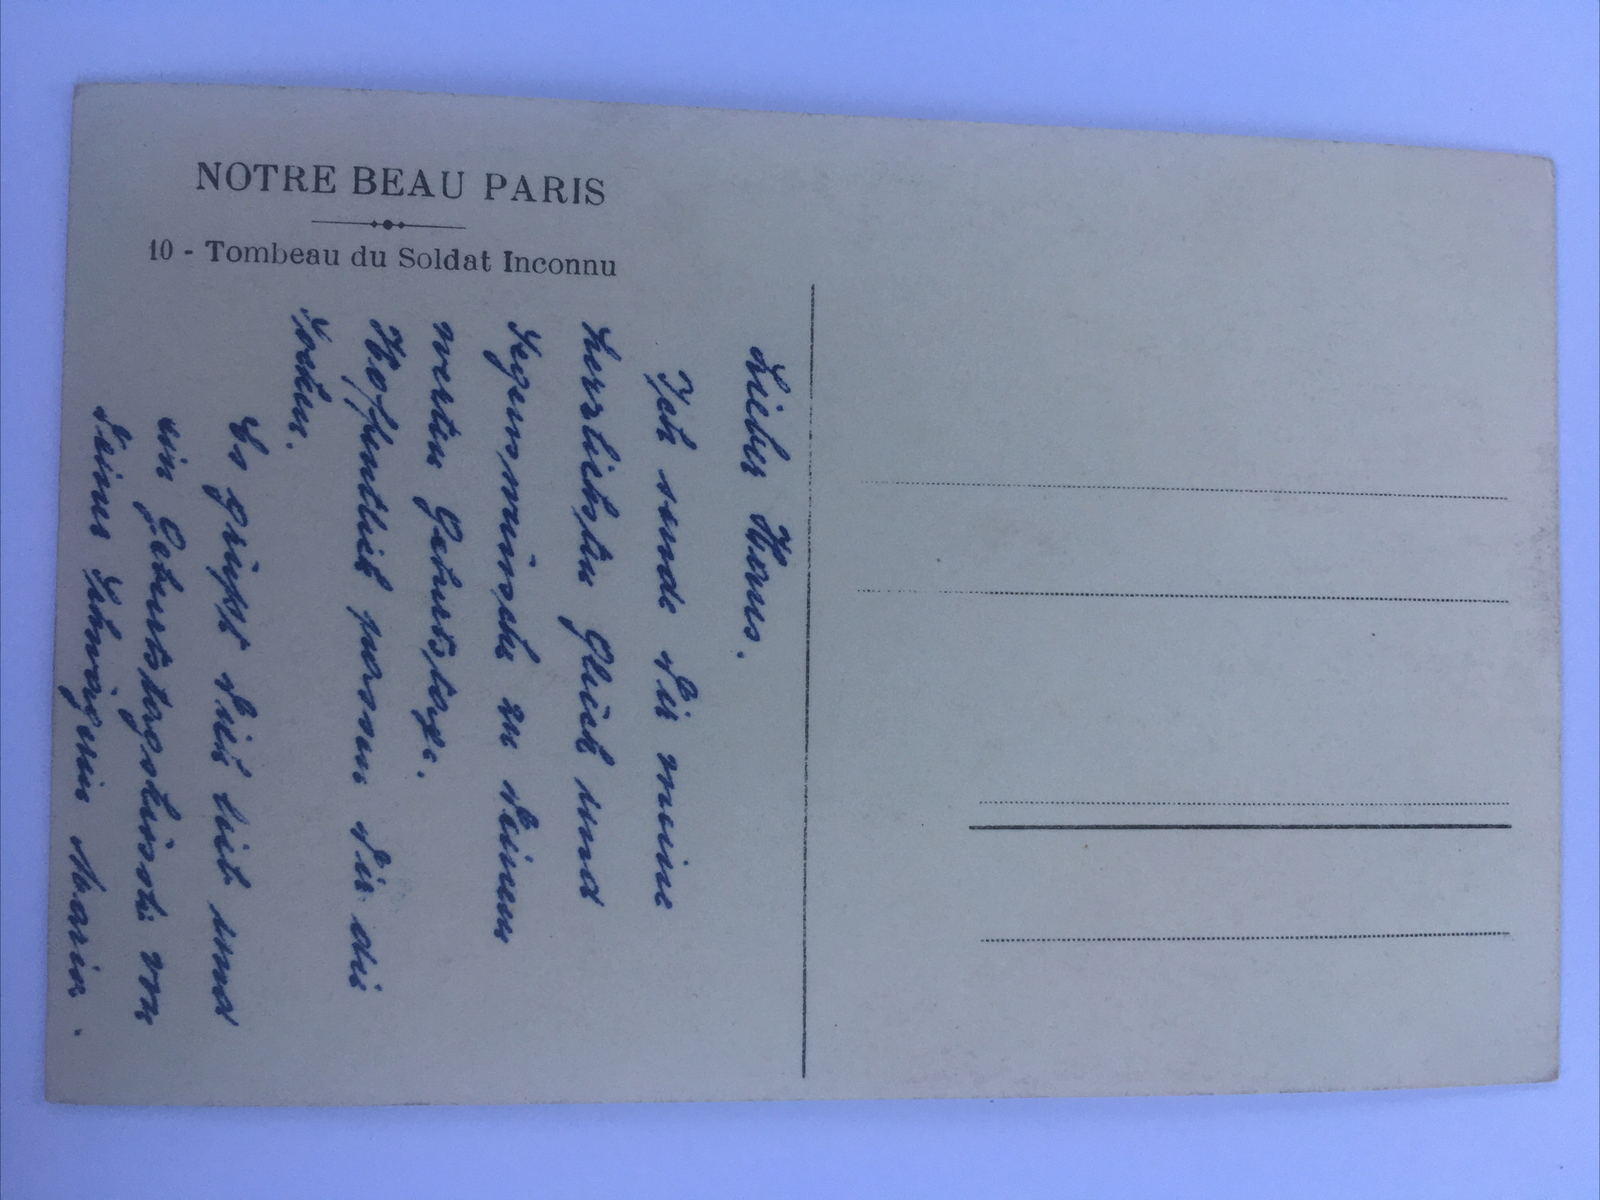 NOTRE BEAU PARIS
10 - Tombeau du Soldat Inconnu
Lieber Hans.
Ich sende Dir meine
herzlichsten Glück und
Segenswünsche zu Deinem
werten Geburtstage.
Hoffentlich passen Dir die
Socken.
Es grüßt Dich lieb und
ein Geburtstagsküssli von
Deiner Schwägerin Maria.